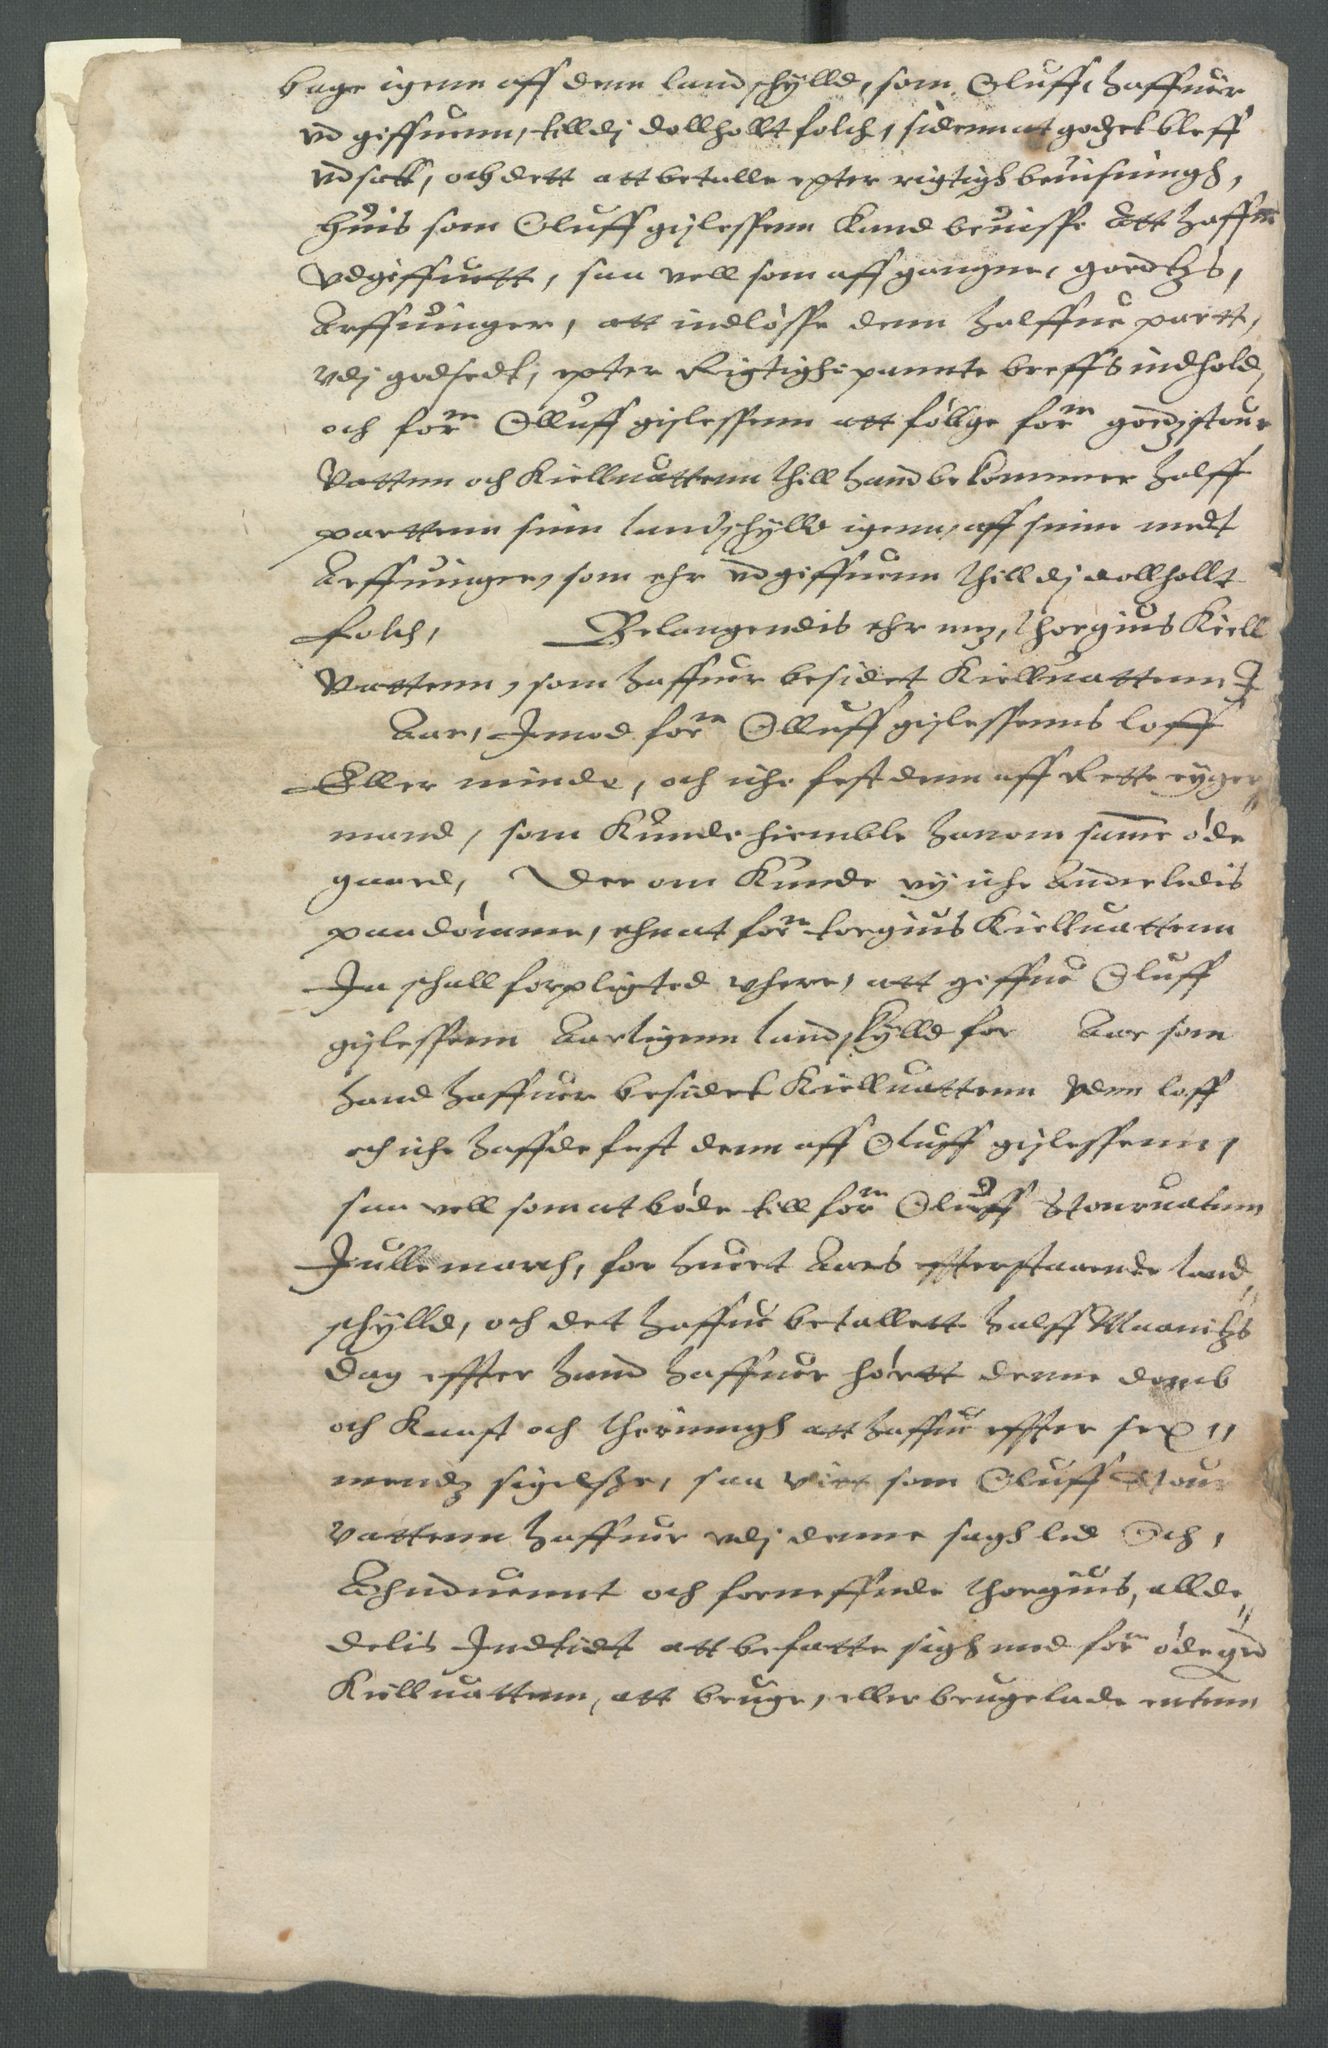 bage igenn aff denn landschylld, som Oluff haffuer
vd giffuenn, till dj dollhollt folch, sidenn at godzet bleff
vdsatt, och dett att betalle epter rigtigh beuisningh,
huis som Oluff gislessenn kand beuisse att haffue
vdgiffuett, saa vell som aff gangne, goedtzs,
Arffuinger, att indløsse denn halffue partt,
vdj godsedt, epter Rigtighe pannte breffs indhold,
och forn Olluff gislessenn att føllge forn godz stour
Vattnn och Kielluattenn thill hand bekommer halff
parttenn sinn landschylld igenn, aff sinne medt
Arffuinger, som ehr vd giffuenn thill dj dollhollt
folch, Belangendis ehr mz, thorgius Kiell
Vattenn, som haffuer besidet Kielluattenn J
Aar, Jmod forn Olluff gislessenns loff
Eller minde, och iche fest denn aff Rette eyger
mand, som Kunde hiemble hanom samme øde
gaard, Der om Kunde vy iche Anderledis
paadømme, ehnat forn torgius Kielluattenn
Ja schall forpligted vhere, att giffue Oluff
gislessenn Aarligenn landskylld for Aar som
hand haffuer besidet Kielluattenn vdenn loff
och iche haffde fest denn aff Oluff gislessenn,
saa vell som at bøde till forn Oluff Stouruatnn
Jullemarch, for huert Aars effterstaaende land
schylld, och det haffue betallett halff Maanitzs
dag effter hand haffuer hørtt denne domb
och Kaast och theringh att haffue effter sex
mendz sigelsze, saa vitt som Oluff Stour
Vattenn haffuer vdj denne sagh lid Och,
Anduennt och forneffnde thorgius, allde
delis Jndtidt att befatte sigh med forn ødegrd
Kielluattenn, att bruge, eller brugelade entenn